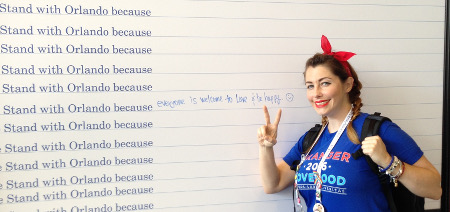 Stand with Orlando because
Stand with Orlando because
Stand with Orlando because
Stand with Orlando because
Stand with Orlando because everyone is welcome to love & be happy ☺
Stand with Orlando because
Stand with Orlando because
Stand with Orlando because
e Stand with Orlando because
e Stand with Orlando because
e Stand with Orlando because